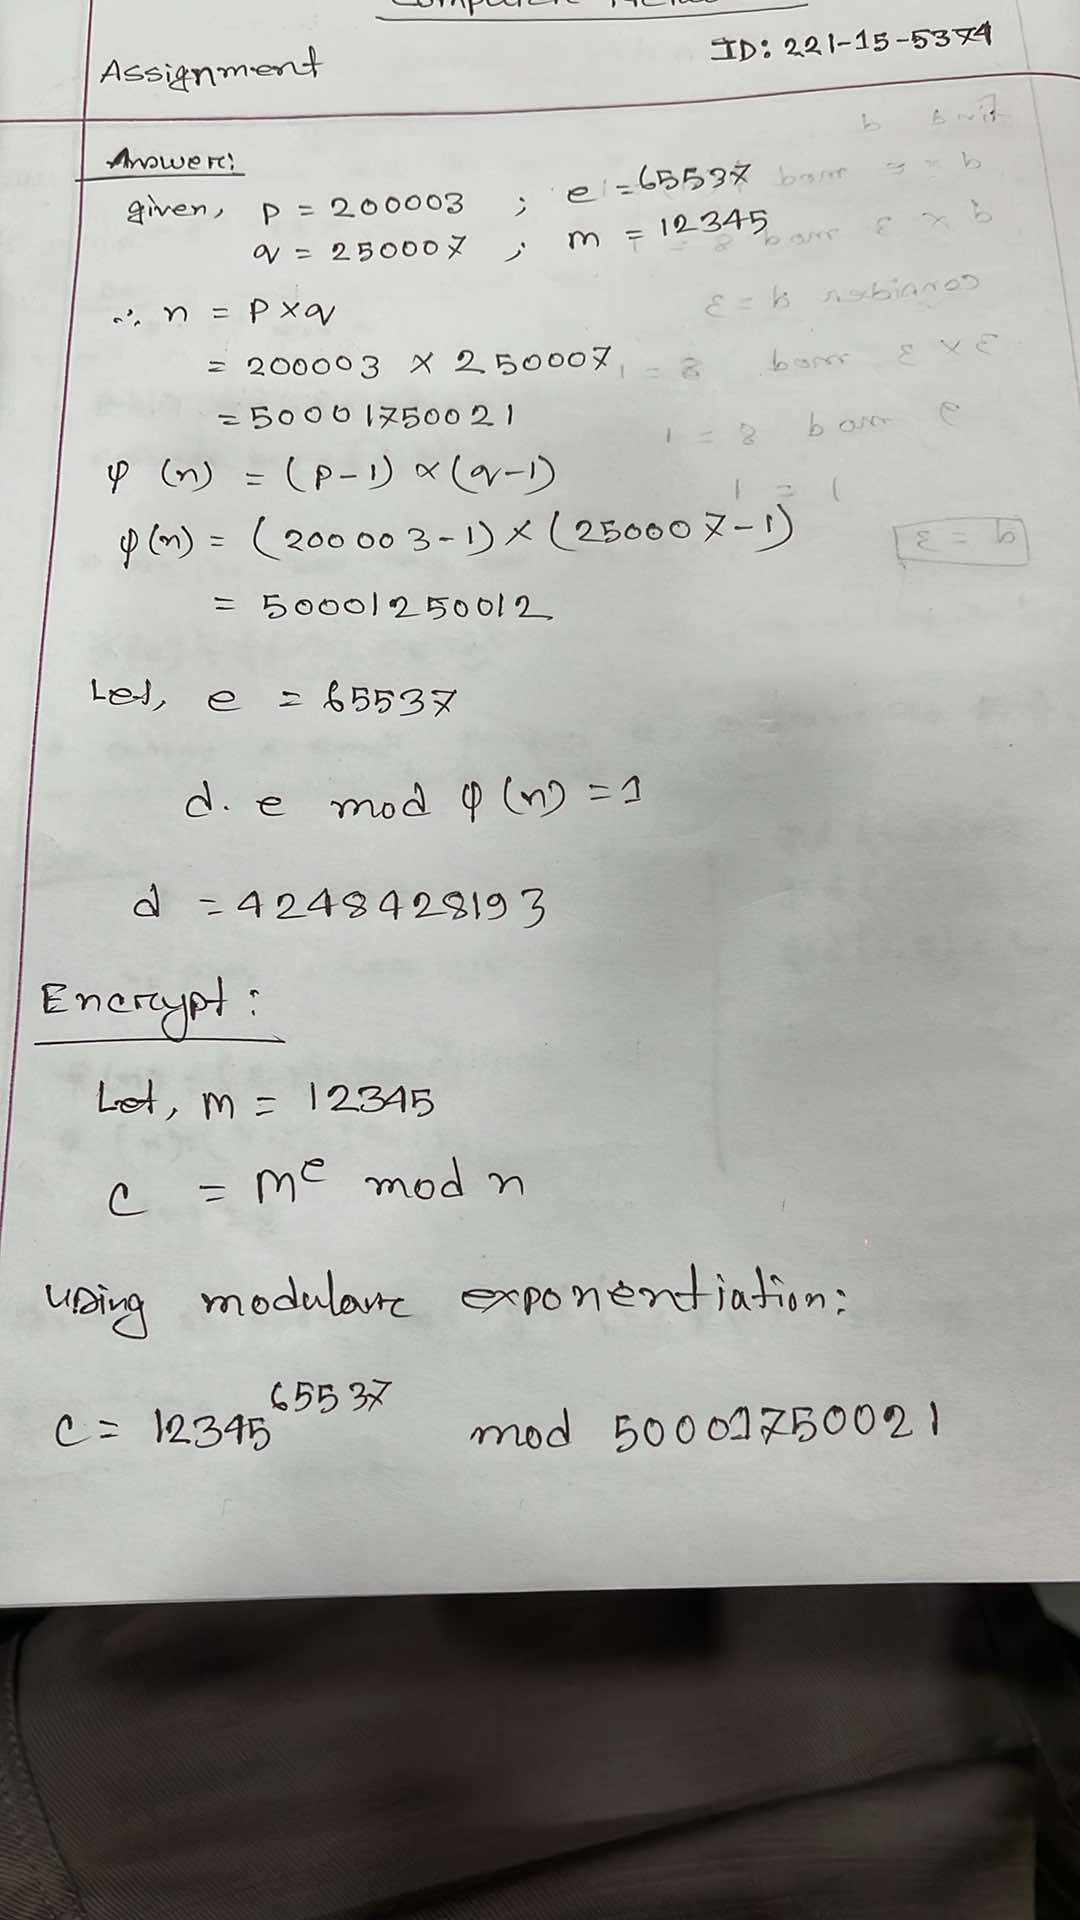 ID: 221-15-5374
Assignment
Answer:
given, p = 200003 ; e = 65537
q = 250007 ; m = 12345
∴ n = p × q
= 200003 × 250007
= 50001750021
φ (n) = (p-1) × (q-1)
φ(n) = (200003-1) × (250007-1)
= 50001250012
Let, e = 65537
d. e mod φ(n) = 1
d = 4248428193
Encrypt:
Let, m = 12345
c = m^e mod n
using modular exponentiation:
c = 12345^65537 mod 50001750021